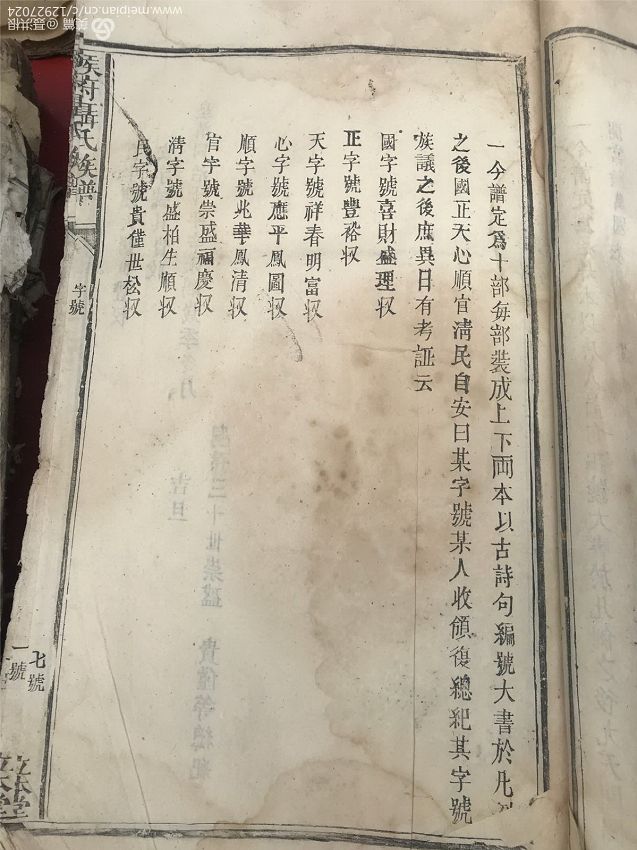 一今譜定爲十部每部裝成上下両本以古詩句編號大書於凡
之後國正天心順官淸民自安曰某字號某人收領復總紀其字號
族議之後庶異日有考証云
國字號喜財盛理収
正字號豐裕収
天字號祥春明富収
心字號應平鳳圖収
順字號兆華鳳清収
官字號崇盛福慶収
清字號盛柏生順収
民字號貴僅世松収
聶氏族譜
字號
七號
一號
立本堂
美篇@聂洪根
www.meipian.cn/c/12927024